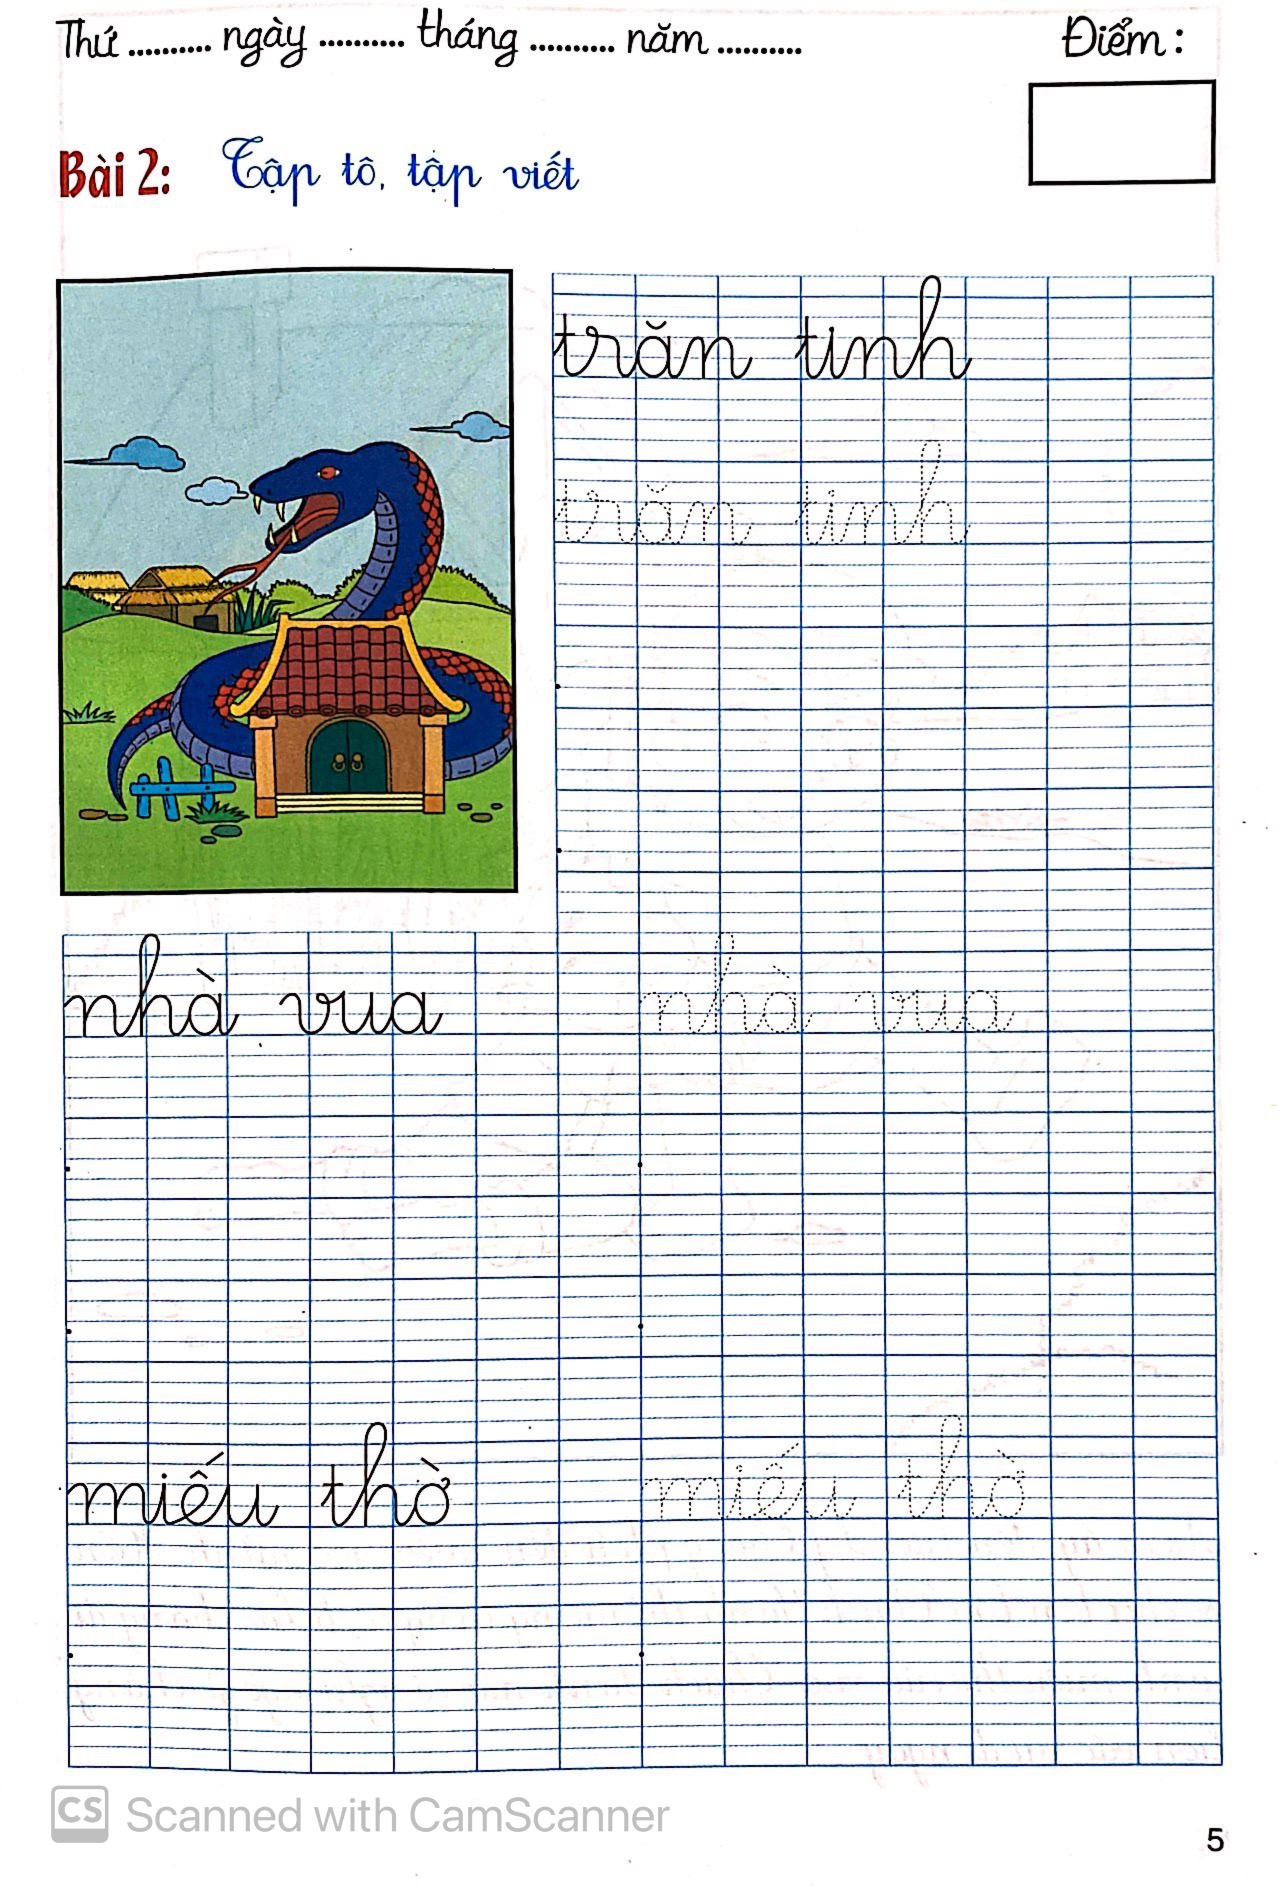 Thứ .......... ngày .......... tháng .......... năm ..........
Điểm :
Bài 2: Tập tô, tập viết
trăn tinh
trăn tinh
nhà vua nhà vua
miếu thờ miếu thờ
CS Scanned with CamScanner
5